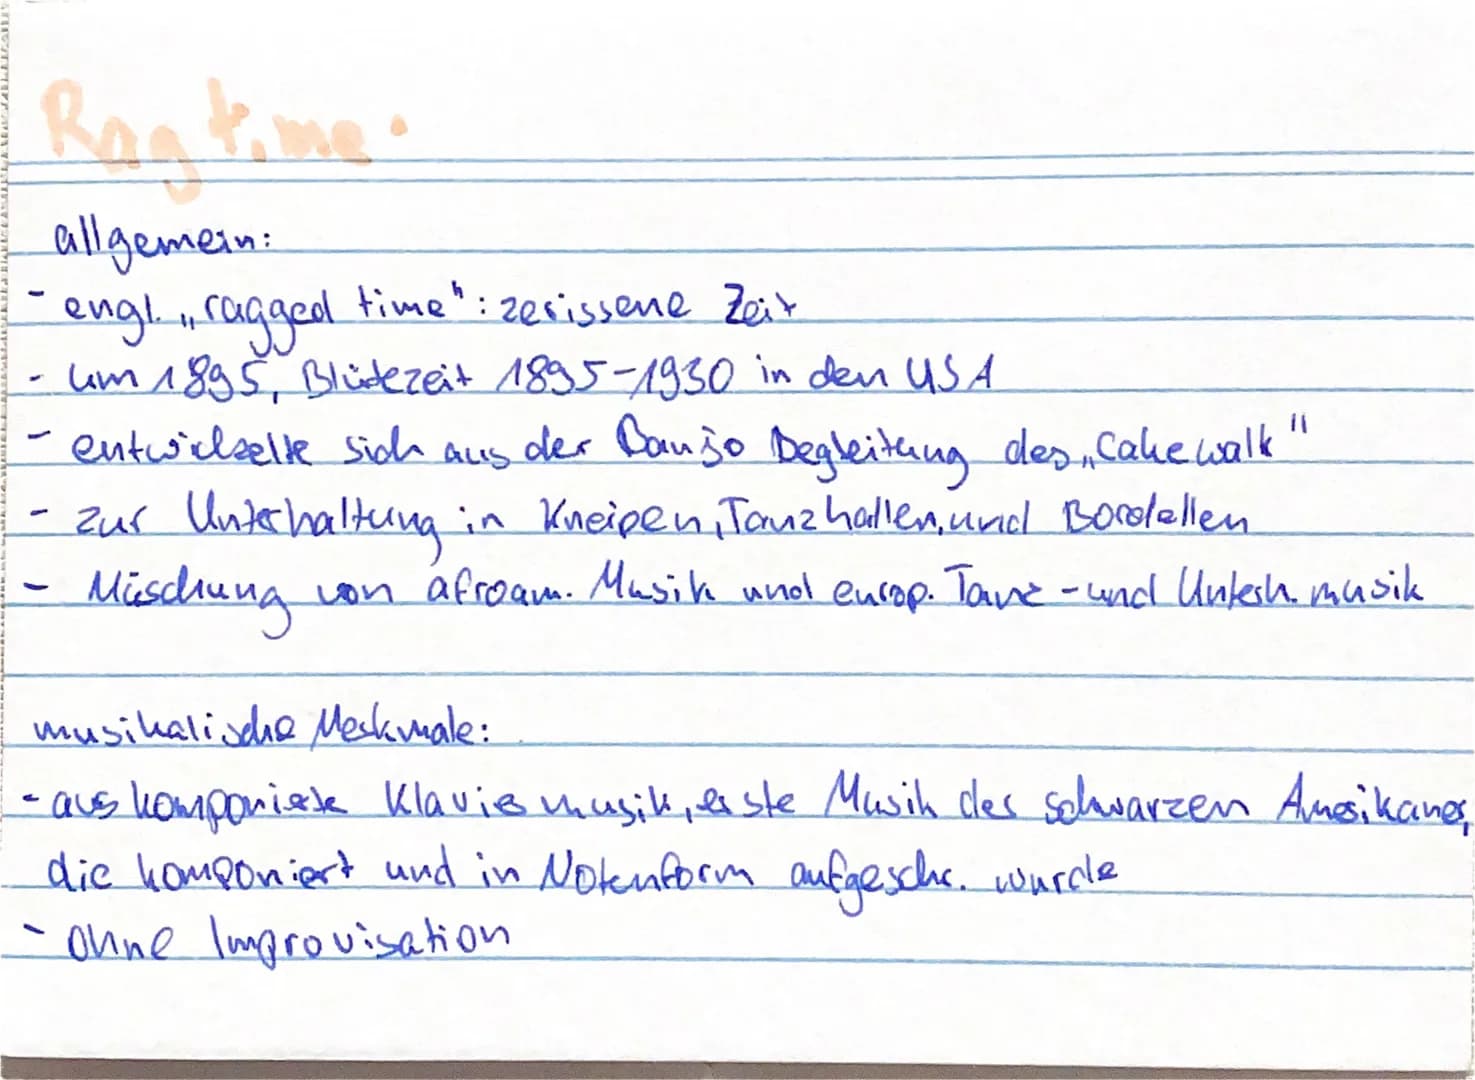 Ragtime.
allgemein:
- engl. „ragged time": zerissene Zeit
- um 1895, Blütezeit 1895-1930 in den USA
- entwickelte sich aus der Banjo Begleitung des „Cakewalk"
- zur Unterhaltung in Kneipen, Tanzhallen, und Bordellen
- Mischung von afroam. Musik und europ. Tanz - und Unterh. musik
musikalische Merkmale:
- aus komponierte Klaviermusik, erste Musik der schwarzen Amerikaner,
die komponiert und in Notenform aufgeschr. wurde
- ohne Improvisation